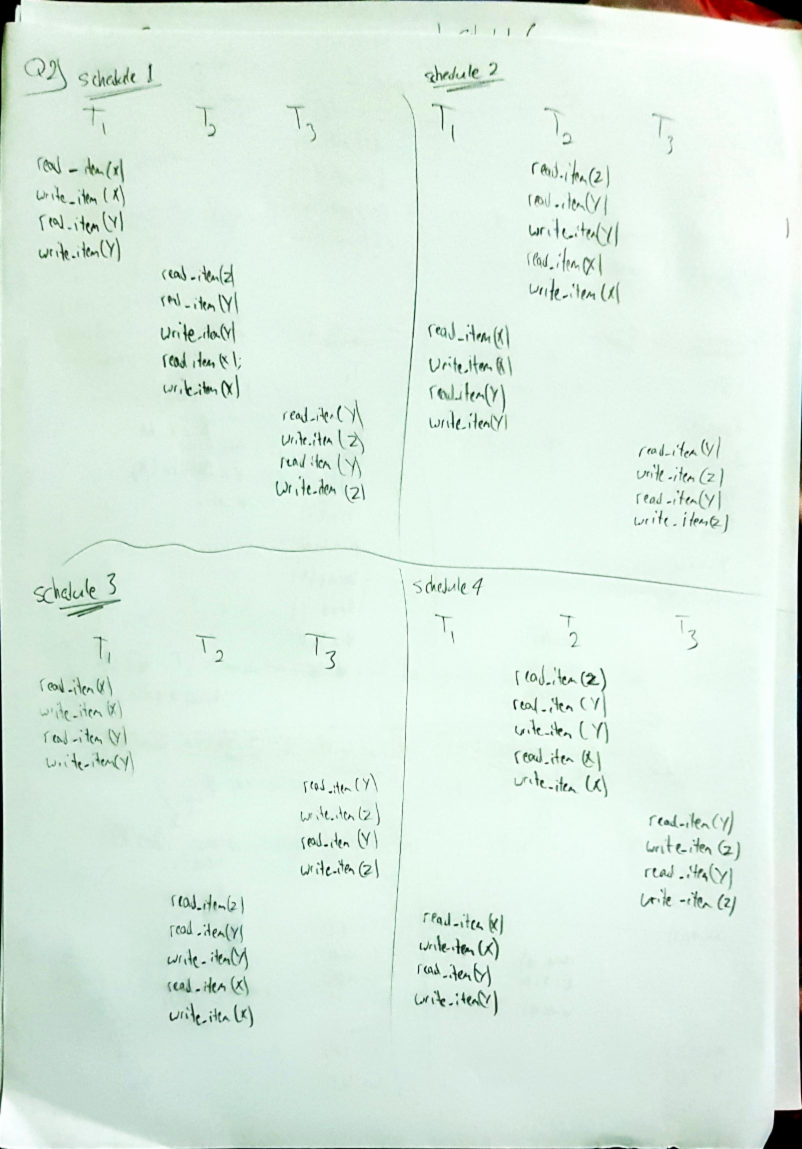 Q2) schedule 1
T1 T2 T3
read_item(X)
write_item(X)
read_item(Y)
write_item(Y)
read_item(Z)
read_item(Y)
write_item(Y)
read item(X);
write item(X)
read_item(Y)
write_item(Z)
read item(Y)
write_item(Z)
schedule 2
T1 T2 T3
read_item(Z)
read_item(Y)
write_item(Y)
read_item(X)
write_item(X)
read_item(X)
write_item(X)
read_item(Y)
write_item(Y)
read_item(Y)
write_item(Z)
read_item(Y)
write_item(Z)
schedule 3
T1 T2 T3
read_item(X)
write_item(X)
read_item(Y)
write_item(Y)
read_item(Y)
write_item(Z)
read_item(Y)
write_item(Z)
read_item(Z)
read_item(Y)
write_item(Y)
read_item(X)
write_item(X)
schedule 4
T1 T2 T3
read_item(Z)
read_item(Y)
write_item(Y)
read_item(X)
write_item(X)
read_item(Y)
write_item(Z)
read_item(Y)
write_item(Z)
read_item(X)
write_item(X)
read_item(Y)
write_item(Y)